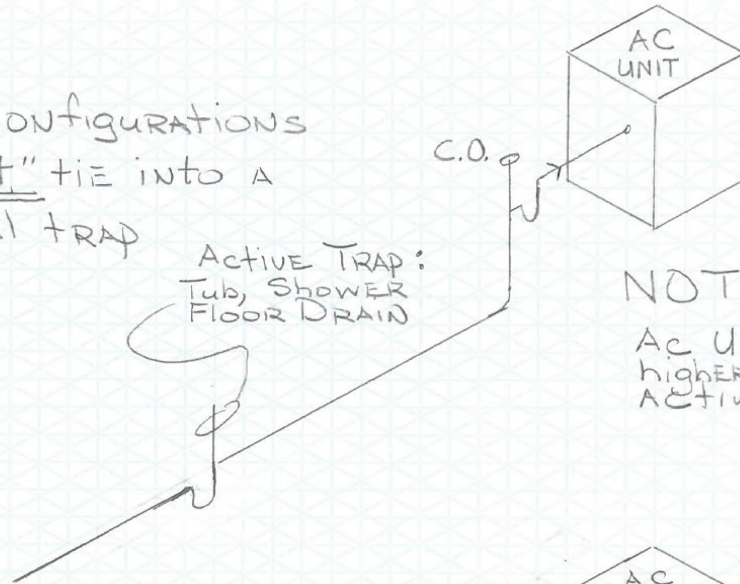 ONFIGURATIONS
t," TIE INTO A
l TRAP
ACTIVE TRAP:
Tub, SHOWER
FLOOR DRAIN
C.O.
AC
UNIT
NOT
AC U
highER
ACTIV
AC